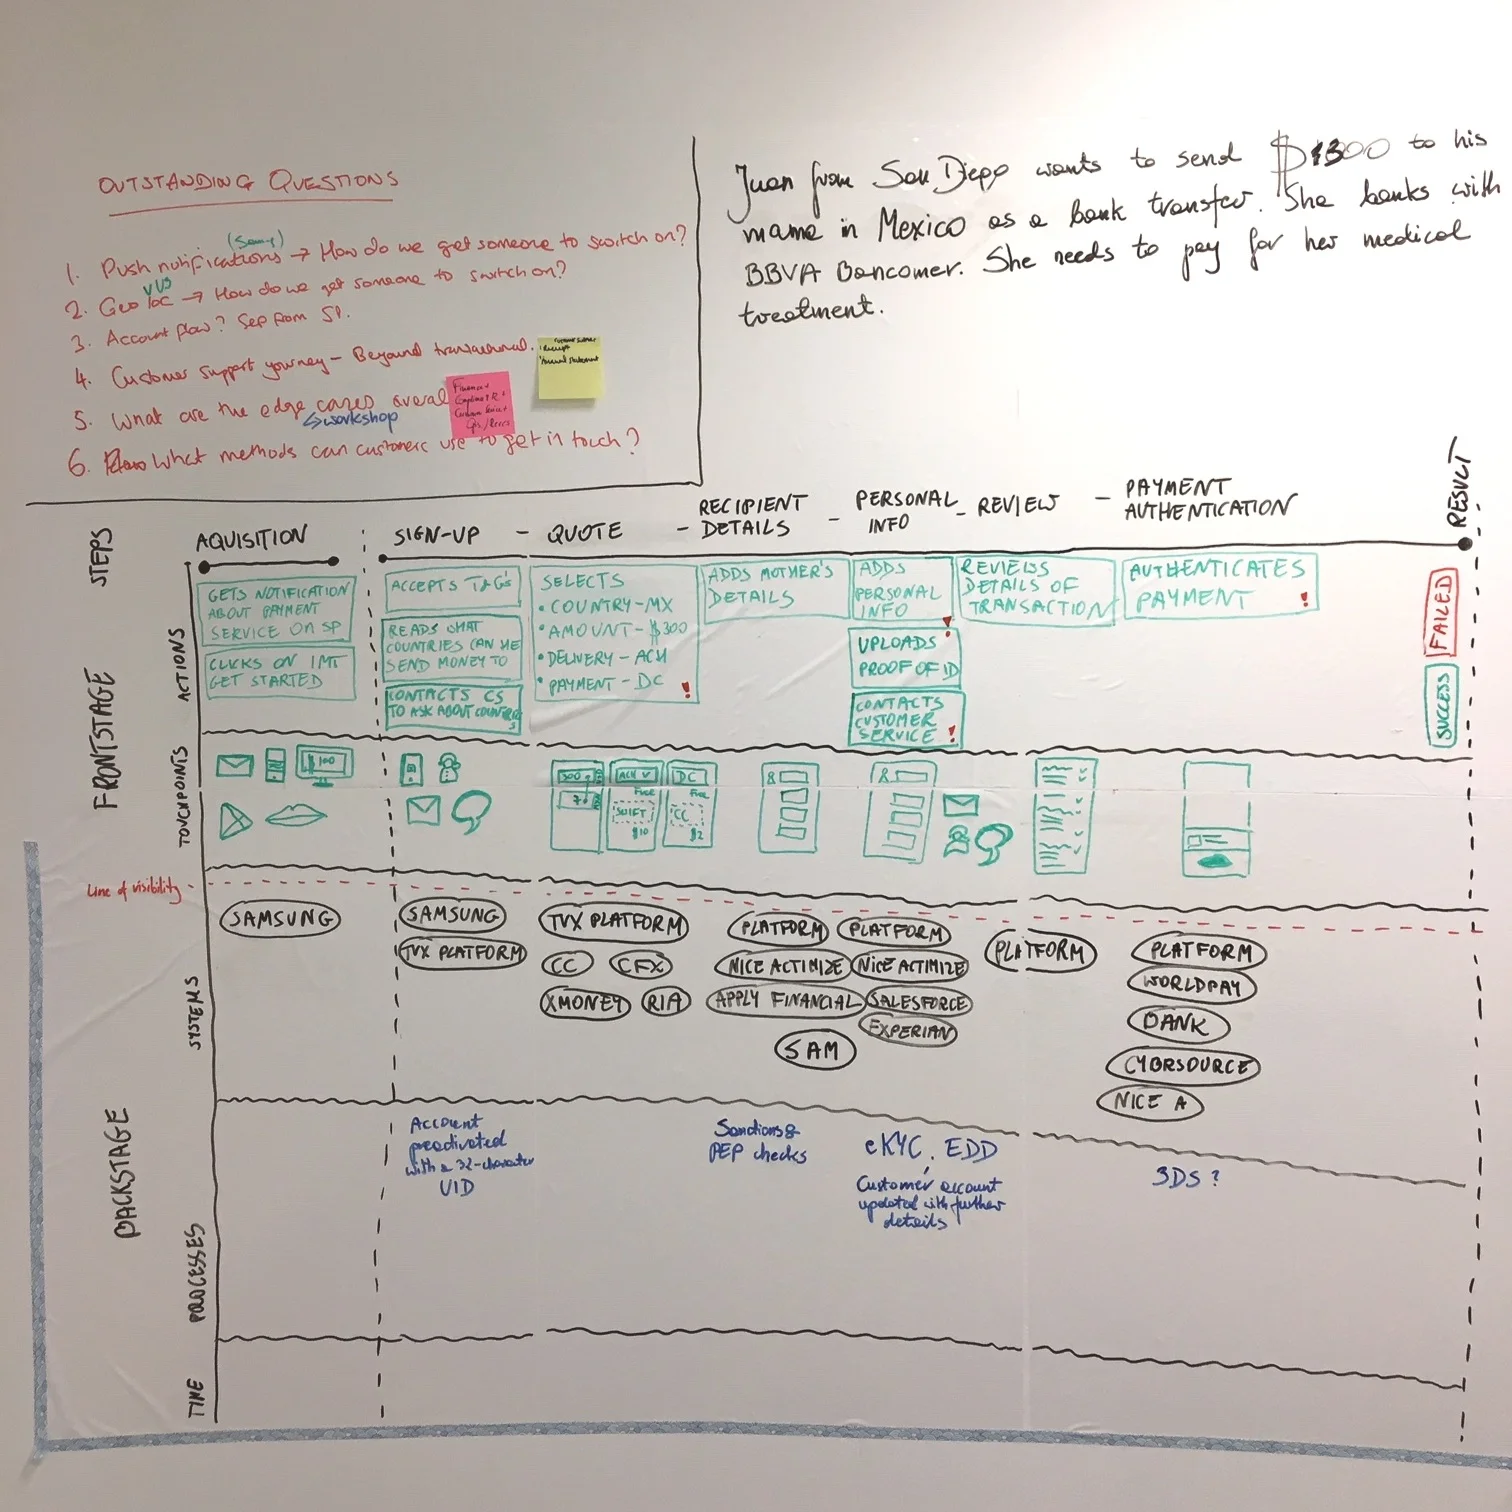 OUTSTANDING QUESTIONS
(Samy)
1. Push notifications → How do we get someone to switch on?
VUS
2. Geo loc → How do we get someone to switch on?
3. Account flow? Sep from SP.
4. Customer support yourney - Beyond transactional.
5. What are the edge cazes overal
↳ workshop
6. What methods can customerc use to get in touch?
Annual statement
Finance+
Juan from San Diego wants to send $300 to his
mama in Mexico as a bank transfer. She banks with
BBVA Bancomer. She needs to pay for her medical
treatment.
STEPS
AQUISITION
SIGN-UP - QUOTE - RECIPIENT DETAILS - PERSONAL INFO - REVIEW - PAYMENT AUTHENTICATION
RESULT
FRONTSTAGE
ACTIONS
GETS NOTIFICATION
ABOUT PAYMENT
SERVICE ON SP
CLICKS ON IMT
GET STARTED
ACCEPTS T&G'S
READS WHAT
COUNTRIES CAN HE
SEND MONEY TO
CONTACTS CS
TO ASK ABOUT COUNTRIES
SELECTS
• COUNTRY - MX
• AMOUNT - $300
• DELIVERY - ACH
• PAYMENT - DC !
ADDS MOTHER'S
DETAILS
ADDS
PERSONAL
INFO !
UPLOADS
PROOF OF ID
CONTACTS
CUSTOMER
SERVICE !
REVIEWS
DETAILS OF
TRANSACTION
AUTHENTICATES
PAYMENT !
FAILED
SUCCESS
TOUCHPOINTS
$100
300
?
ACH
Free
SWIFT
$10
DC
Free
CC
$2
Line of visibility
BACKSTAGE
SYSTEMS
SAMSUNG
SAMSUNG
TVX PLATFORM
TVX PLATFORM
CC
CFX
XMONEY
RIA
PLATFORM
NICE ACTIMIZE
APPLY FINANCIAL
SAM
PLATFORM
NICE ACTIMIZE
SALESFORCE
EXPERIAN
PLATFORM
PLATFORM
WORLDPAY
BANK
CYBRSOURCE
NICE A
PROCESSES
Account
preactivated
with a 32-character
UID
Sanctions &
PEP checks
eKYC, EDD
Customer account
updated with further
details
3DS ?
TIME